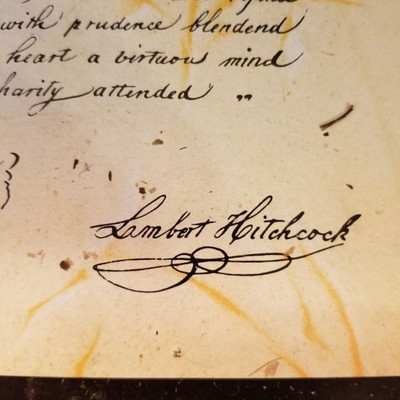 with prudence blendend
heart a virtuou mind
harity attended "
Lambert Hitchcock